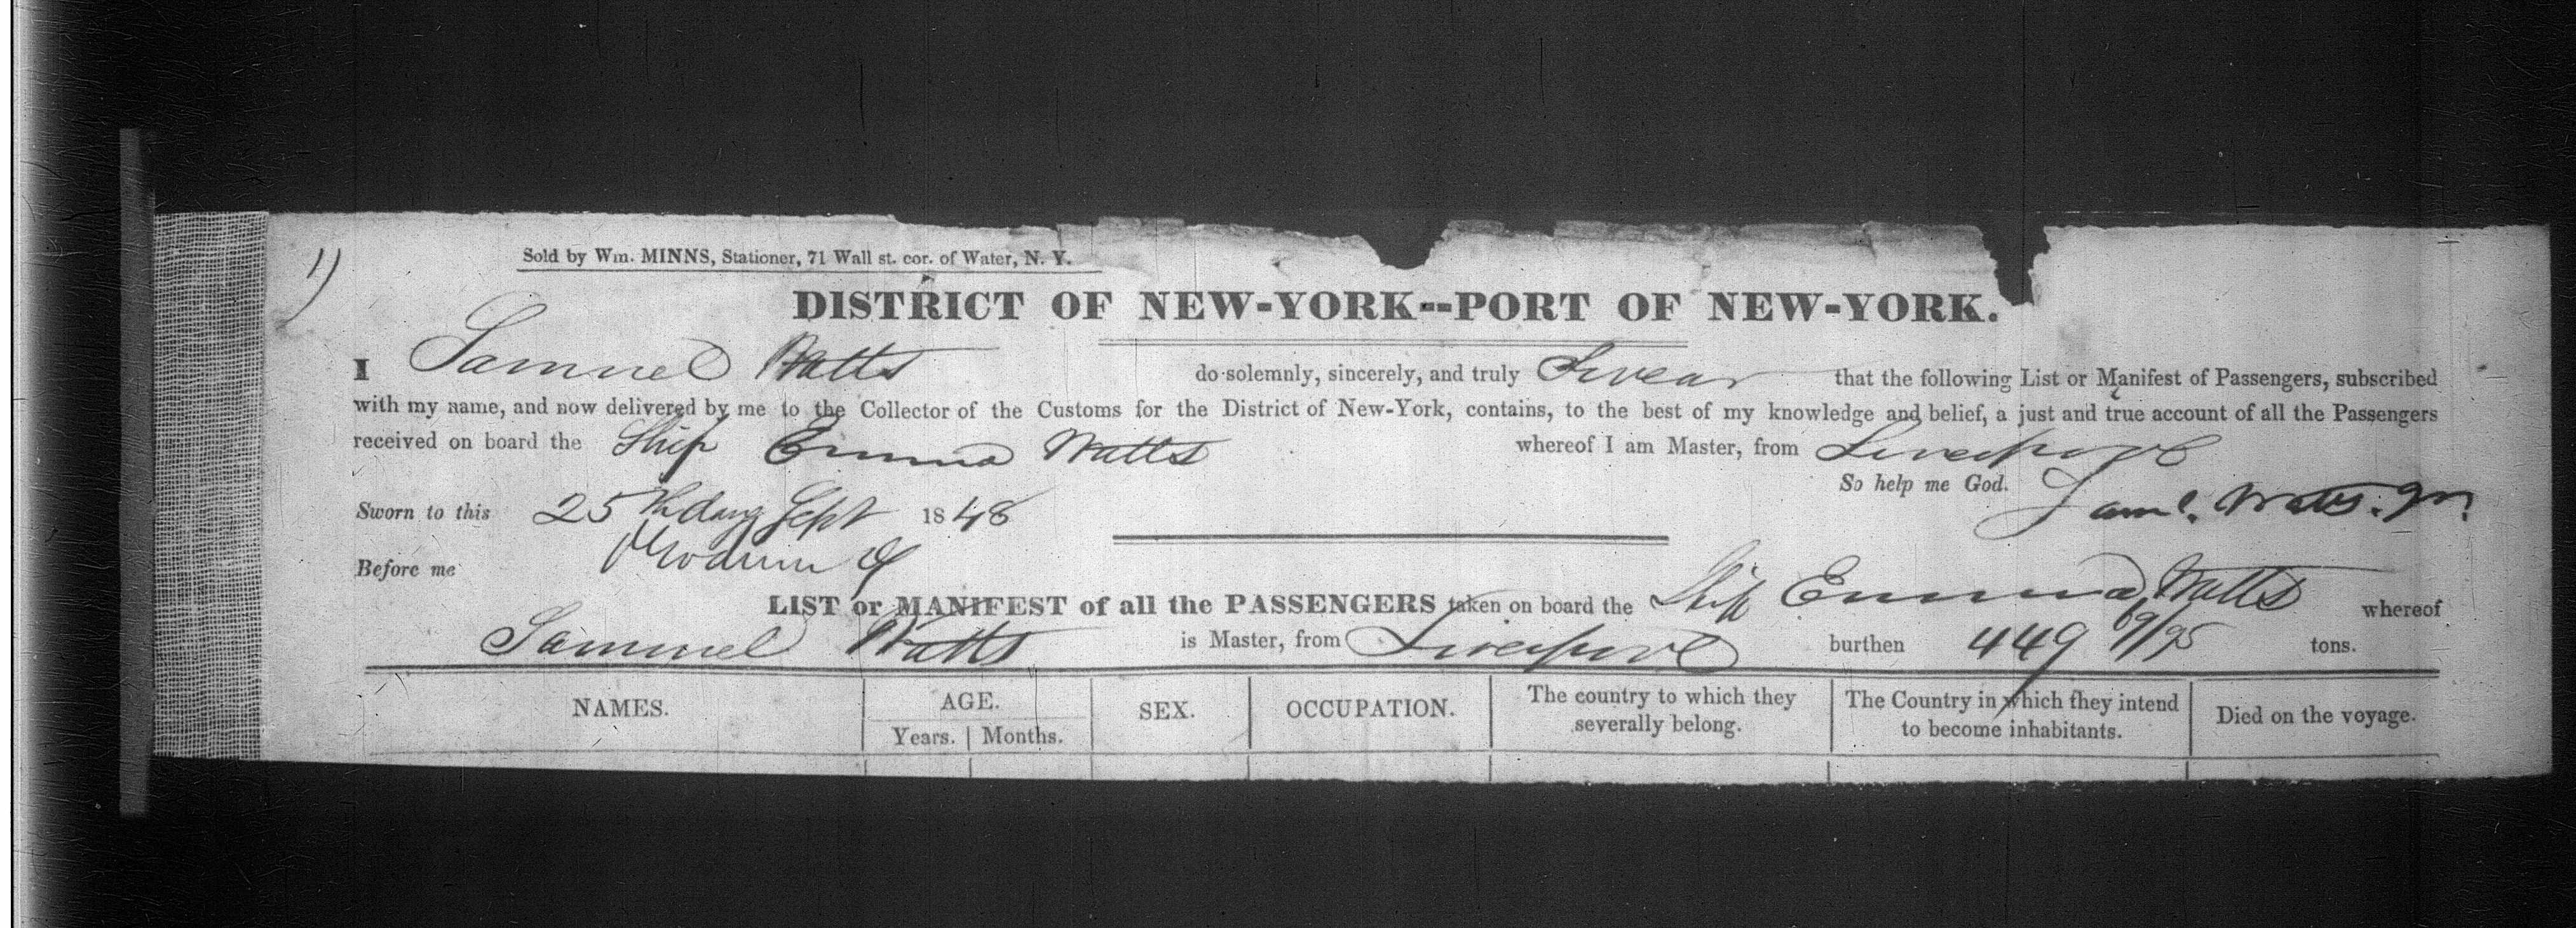 1)
Sold by Wm. MINNS, Stationer, 71 Wall st. cor. of Water, N. Y.
DISTRICT OF NEW-YORK--PORT OF NEW-YORK.
I Samuel Watts do solemnly, sincerely, and truly Swear that the following List or Manifest of Passengers, subscribed
with my name, and now delivered by me to the Collector of the Customs for the District of New-York, contains, to the best of my knowledge and belief, a just and true account of all the Passengers
received on board the Ship Emma Watts whereof I am Master, from Liverpool
So help me God.
Sworn to this 25th day Sept 1848 Saml. Watts. Jn.
Before me
LIST or MANIFEST of all the PASSENGERS taken on board the Ship Emma Watts whereof
Samuel Watts is Master, from Liverpool burthen 449 69/95 tons.
NAMES. AGE. SEX. OCCUPATION. The country to which they severally belong. The Country in which they intend to become inhabitants. Died on the voyage.
Years. Months.